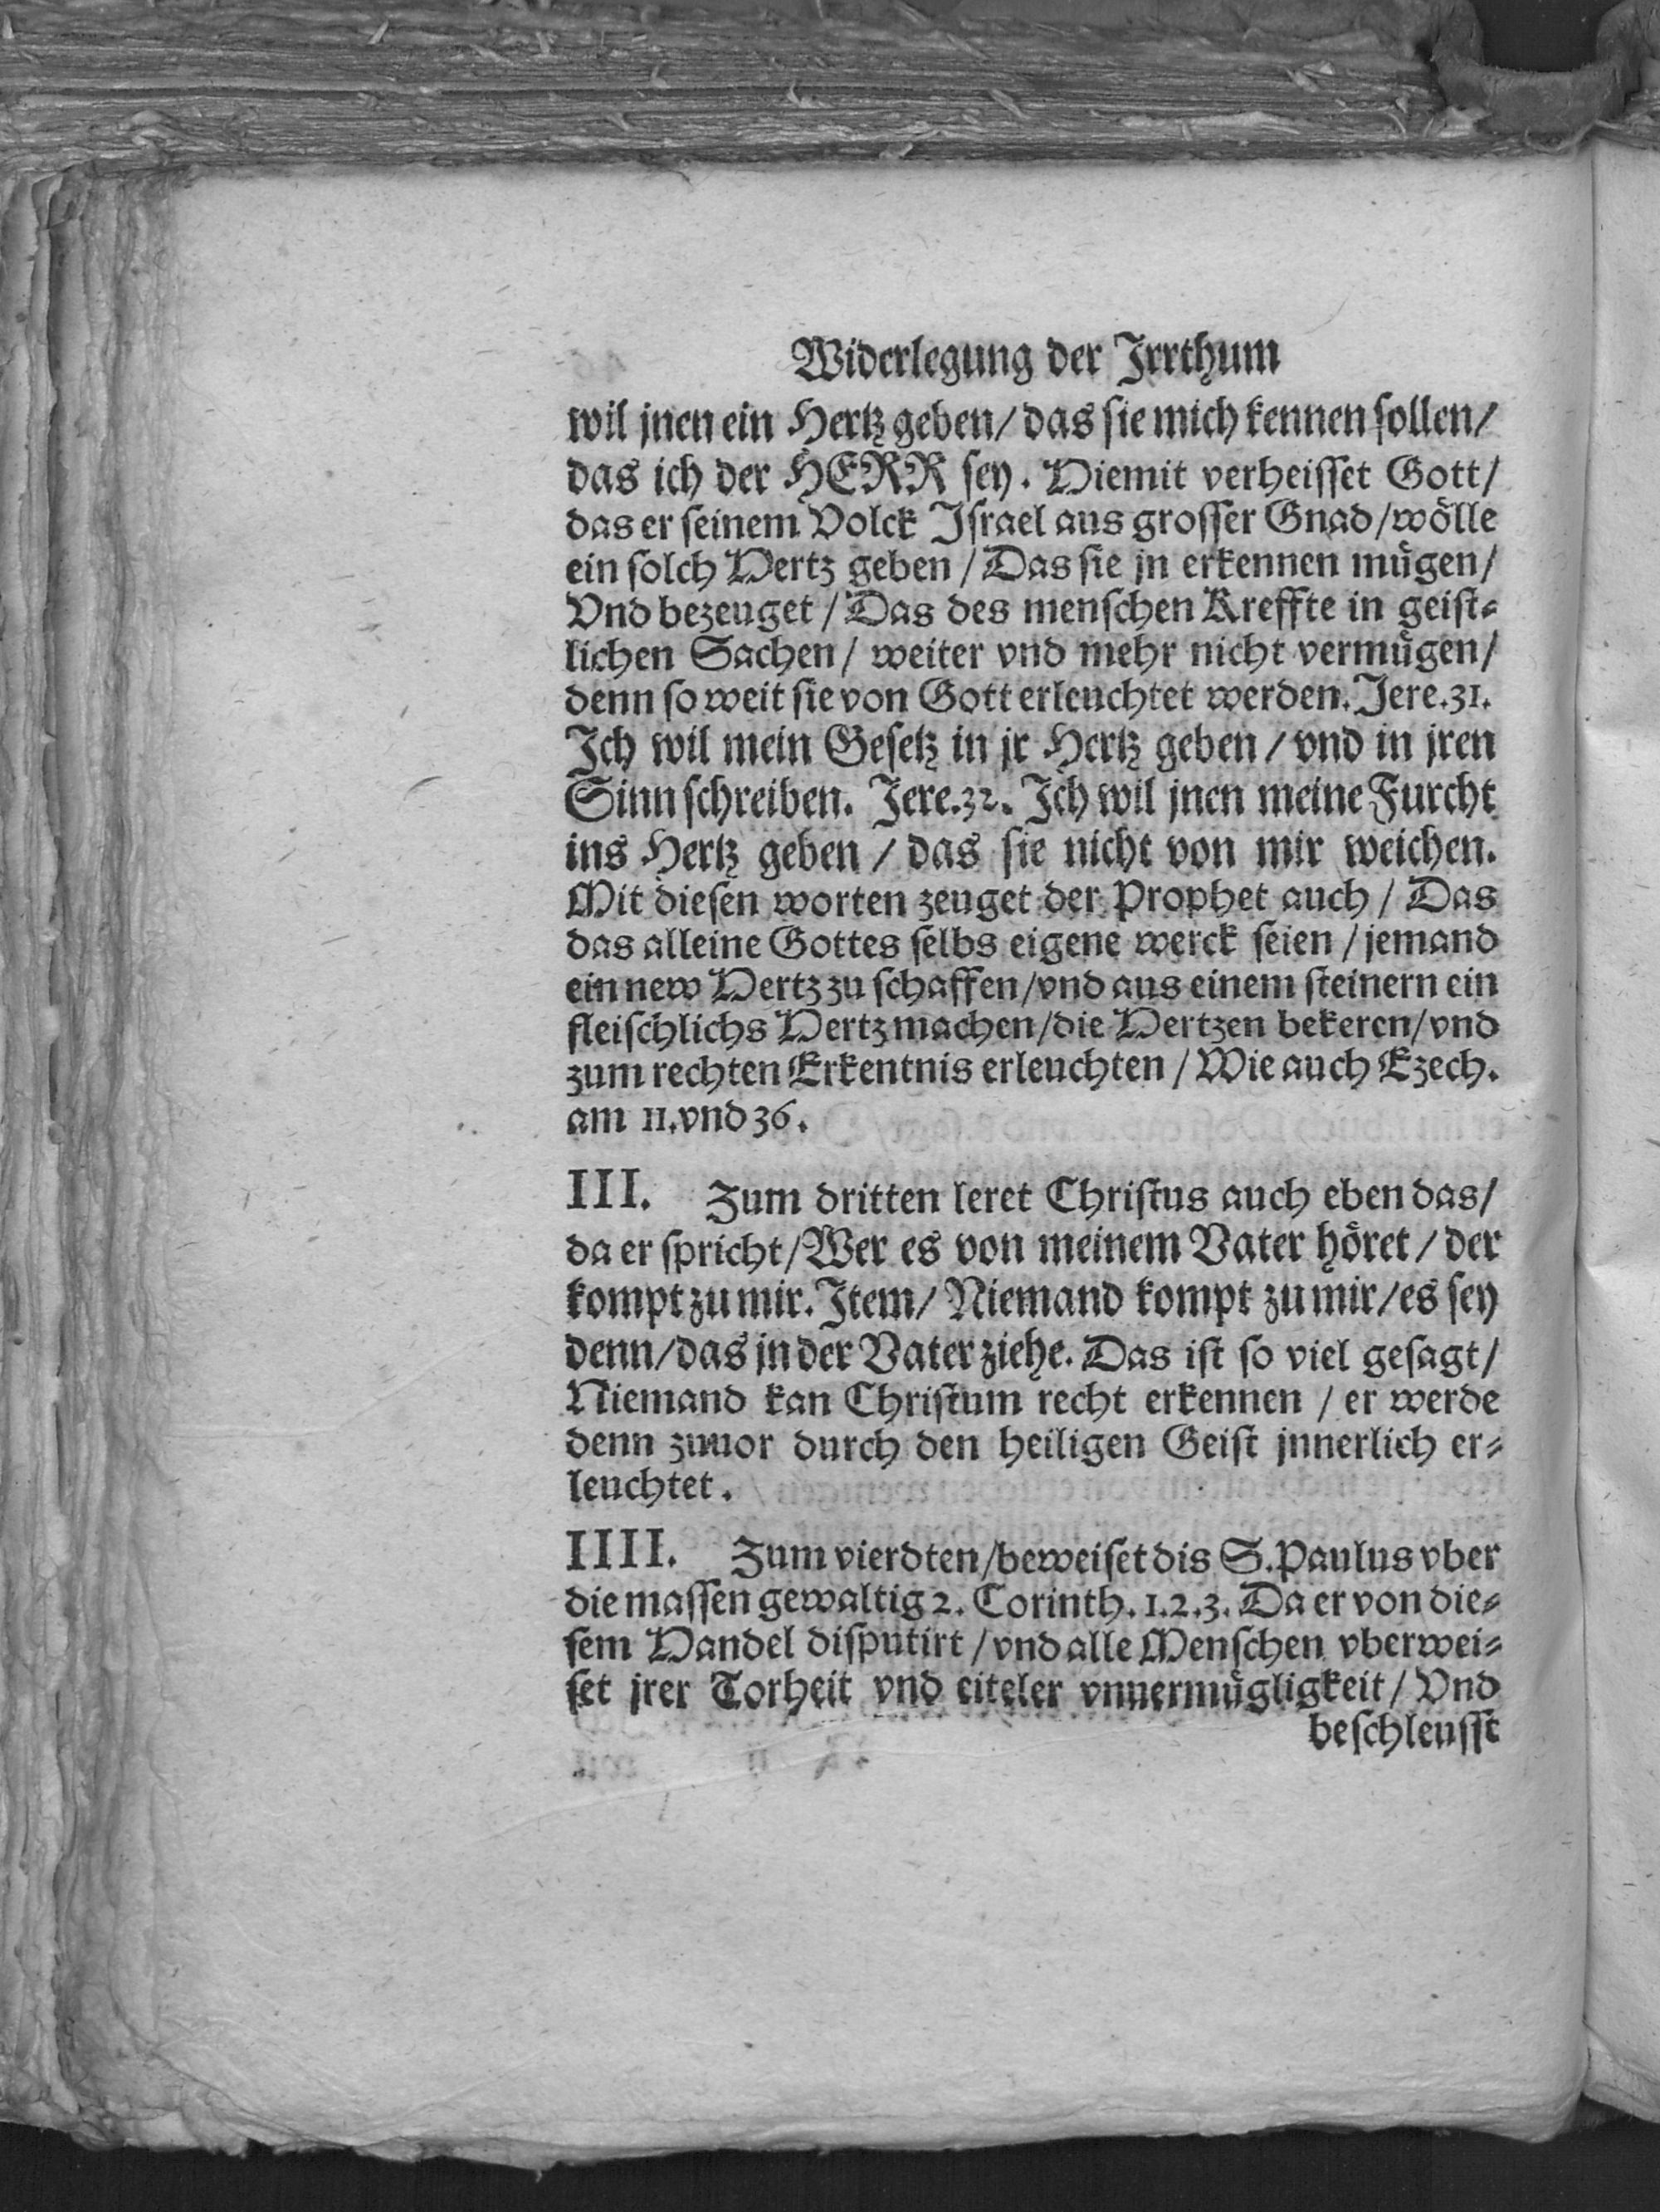 Widerlegung der Jrrthum
wil jnen ein Hertz geben/ das ſie mich kennen ſollen/
das ich der HERR ſey. Hiemit verheiſſet Gott/
das er ſeinem Volck Jſrael aus groſſer Gnad/wölle
ein ſolch Hertz geben / Das ſie jn erkennen mügen/
Vnd bezeuget / Das des menſchen Kreffte in geiſt⸗
lichen Sachen / weiter vnd mehr nicht vermügen/
denn ſo weit ſie von Gott erleuchtet werden. Jere.31.
Jch wil mein Geſetz in jr Hertz geben / vnd in jren
Sinn ſchreiben. Jere.32. Jch wil jnen meine Furcht
ins Hertz geben / das ſie nicht von mir weichen.
Mit dieſen worten zeuget der Prophet auch / Das
das alleine Gottes ſelbs eigene werck ſeien / jemand
ein new Hertz zu ſchaffen /vnd aus einem ſteinern ein
fleiſchlichs Hertz machen /die Hertzen bekeren/vnd
zum rechten Erkentnis erleuchten / Wie auch Ezech.
am 11.vnd 36.
III. Zum dritten leret Chriſtus auch eben das/
da er ſpricht/Wer es von meinem Vater höret / der
kompt zu mir. Jtem/ Niemand kompt zu mir/es ſey
denn/das jn der Vater ziehe. Das iſt ſo viel geſagt/
Niemand kan Chriſtum recht erkennen / er werde
denn zuuor durch den heiligen Geiſt jnnerlich er⸗
leuchtet.
IIII. Zum vierdten /beweiſet dis S.Paulus vber
die maſſen gewaltig 2. Corinth. 1.2.3. Da er von die⸗
ſem Handel diſputirt / vnd alle Menſchen vberwei⸗
ſet jrer Torheit vnd eiteler vnuermügligkeit / Vnd
beſchleuſſt